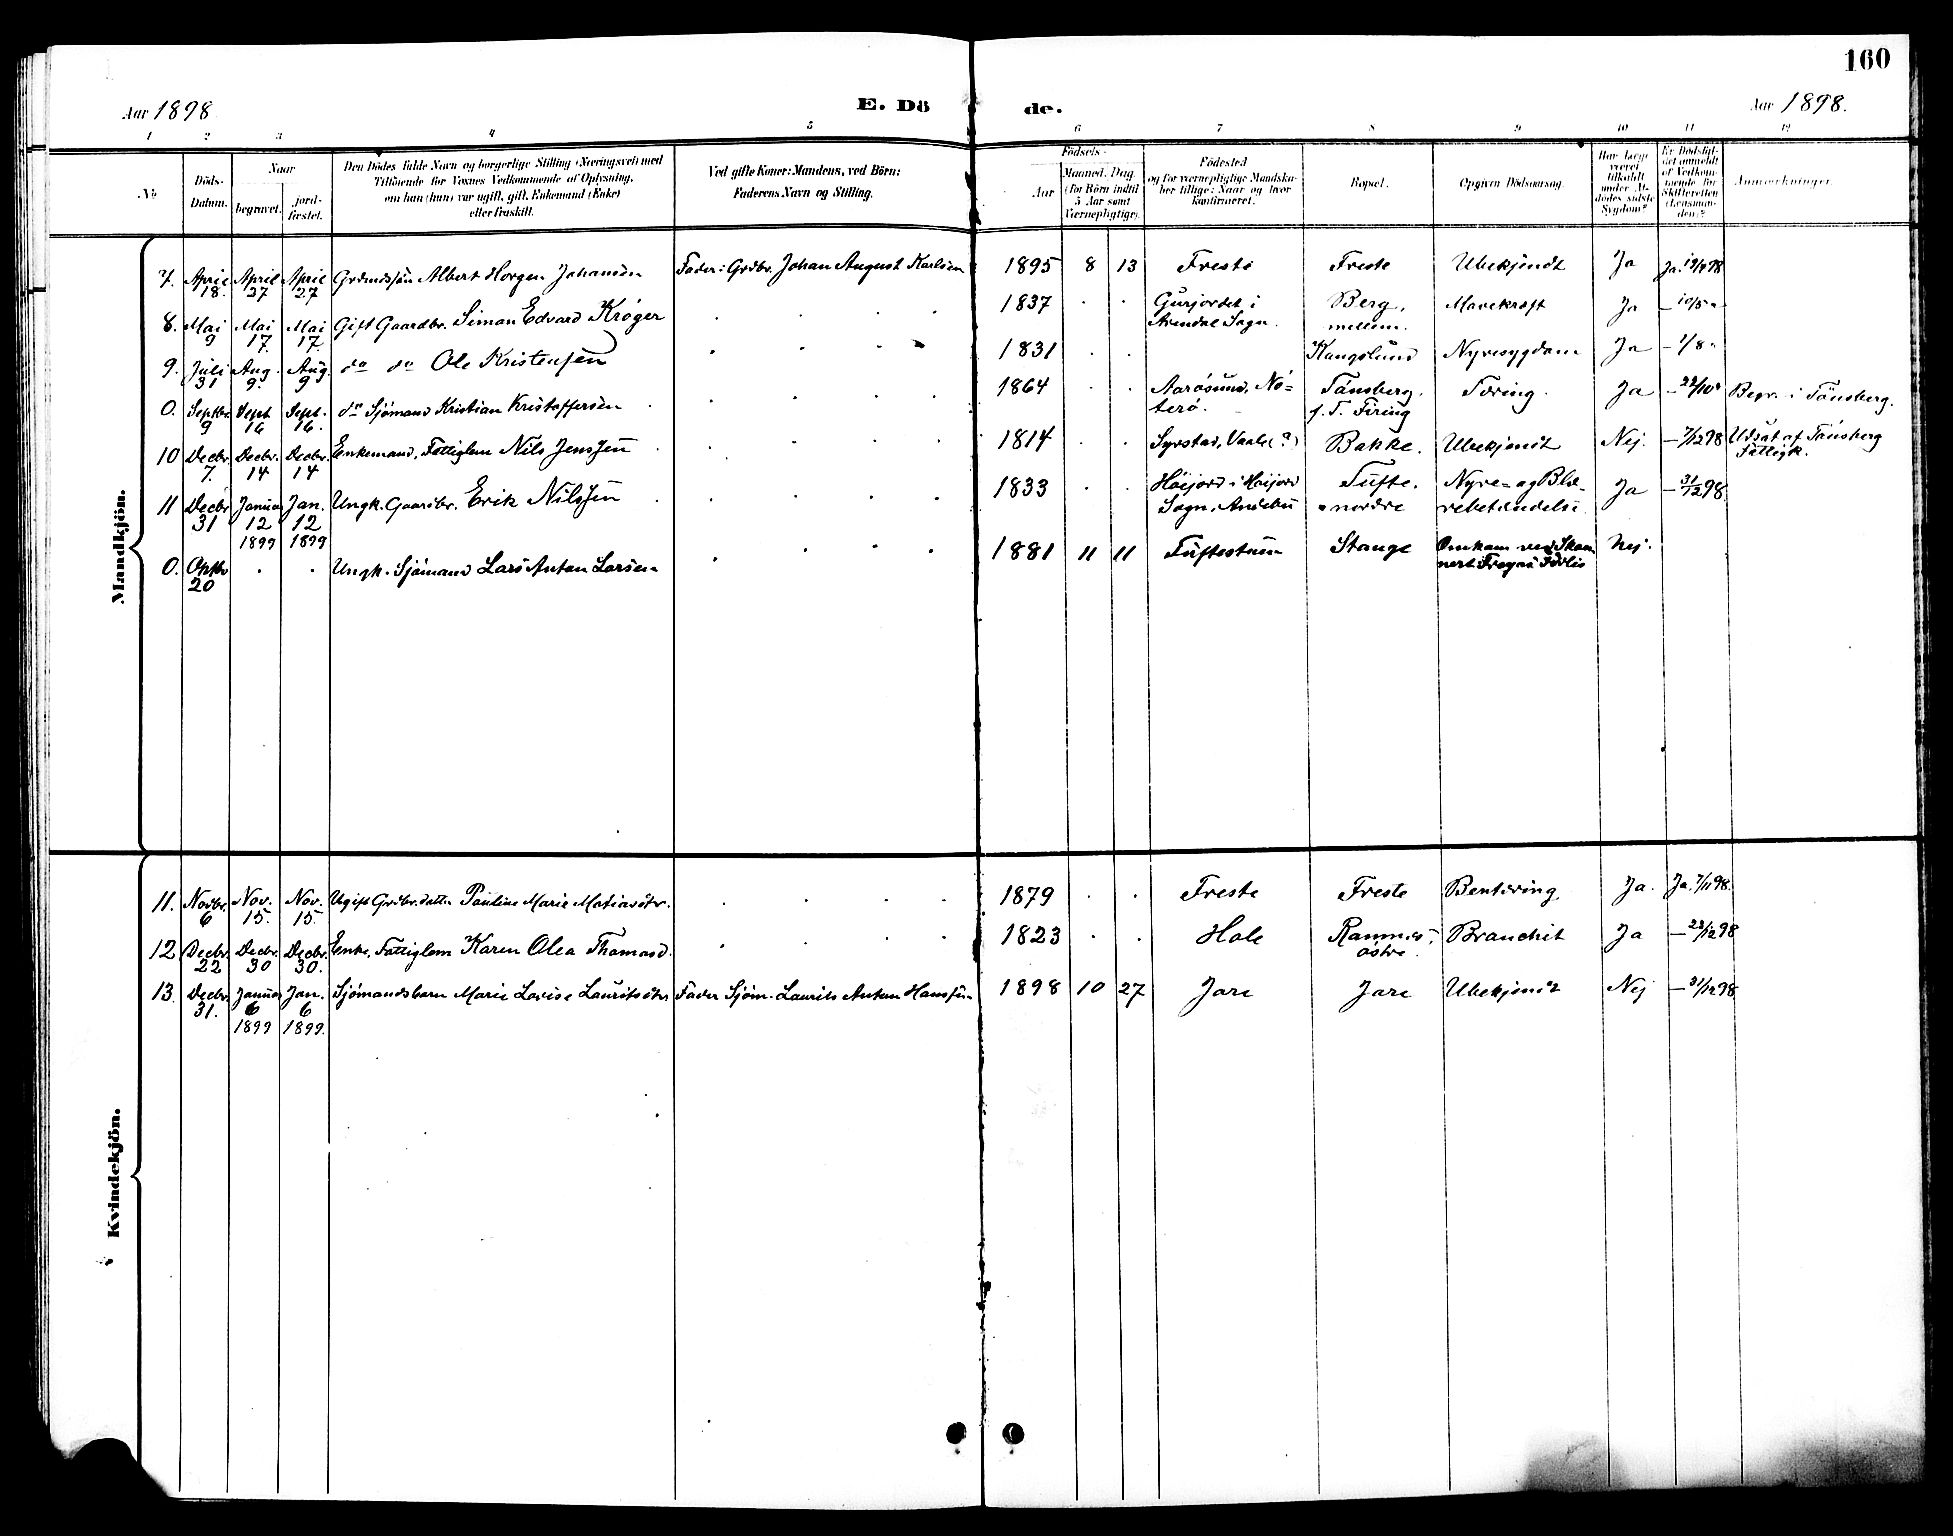 160
Aar 1898
E. Dö
de.
Aar 1898.
1 2 3 4 5 6 7 8 9 10 11 12
No
Döds-Datum.
Naar
begravet.
jord-fæstet.
Den Dödes fulde Navn og borgerlige Stilling (Næringsvei) med
Tilföiende for Voxnes Vedkommende af Oplysning,
om han (hun) var ugift, gift, Enkemand (Enke)
eller fraskilt.
Ved gifte Koner: Mandens, ved Börn:
Faderens Navn og Stilling.
Födsels-
Aar
Maaned. Dag.
(for Börn indtil
5 Aar samt
Værnepligtige).
Födested
og for værnepligtige Mandska-
ber tillige: Naar og hvor
konfirmeret.
Bopæl.
Opgiven Dödsaarsag.
Har Læge
været
tilkaldt
under Af-
dödes sidste
Sygdom?
Er Dödsfal-
det anmeldt
af Vedkom-
mende for
Skifteretten
(Lensman-
den)?
Anmærkninger.
Mandkjön.
7. April 18. April 27 April 27 Grdmdssön Albert Horgen Johansen Fader: Grdbr. Johan August Karlsen 1895 8 13 Freste Freste Ubekjendt Ja Ja. 19/4 98
8. Mai 9 Mai 17. Mai 17. Gift Gaardbr. Simon Edvard Kröger 1837 Gurjordet i Arendal Sogn. Berg, mellem. Mavekræft Ja - 10/5 "
9. Juli 31 Aug. 9. Aug. 9 do do Ole Kristensen 1831 Kangslund Nyresygdom Ja - 1/8 "
0. Septbr. 9 Sept 16 Sept. 16. do Sjömand Kristian Kristoffersen 1864 Aarösund, Nö-terö. Tönsberg, f. T. Firing Tæring. Ja - 22/10 " Begr. i Tönsberg.
10 Decbr. 7. Decbr. 14 Decbr. 14 Enkemand, Fattiglem Nils Jenssen 1814 Syrstad, Vaale (?) Bakke. Ubekjendt Nej. - 7/12 98 Udsat af Tönsberg Fattigk.
11 Decbr 31 Januar 12 1899 Jan. 12 1899 Ungk. Gaardbr. Erik Nilssen 1833 Höijord i Höijord Sogn, Andebu Tufte, nordre Nyre- og Blæ-rebetændelse Ja - 31/12 98
0. Oktbr 20 Ungk. Sjömand Lars Anton Larsen 1881 11 11 Tuftestuen Stange Omkom ved Skonnert Nej.
Kvindekjön.
11. Novbr. 6 Nov. 15. Nov. 15. Ugift Grdbr.datter Pauline Marie Matiasdtr. 1879 Freste Freste Bentæring Ja. Ja. 7/11 98.
12 Decbr. 22 Decbr. 30 Decbr. 30. Enke, Fattiglem Karen Olea Thomasd. 1823 Hole Ramnes, östre. Bronchit Ja - 22/12 98
13. Decbr. 31. Januar 6 1899 Jan. 6 1899. Sjömandsbarn Marie Lovise Lauritsdtr Fader Sjöm. Laurits Anton Hanssen 1898 10 27 Jare Jare Ubekjendt Nej - 31/12 98